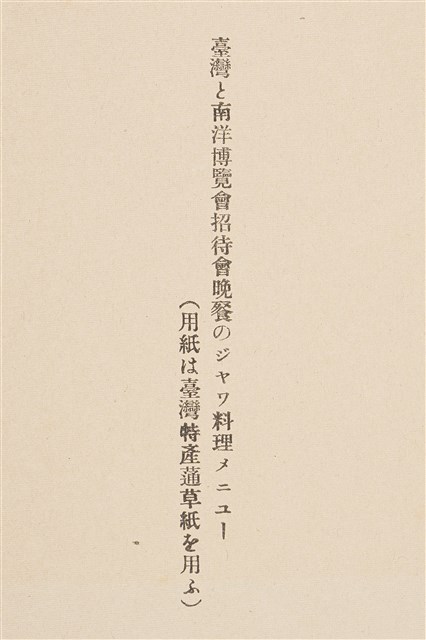 臺灣と南洋博覽會招待會晩餐のジャワ料理メニュー
(用紙は臺灣特產蓪草紙を用ふ)